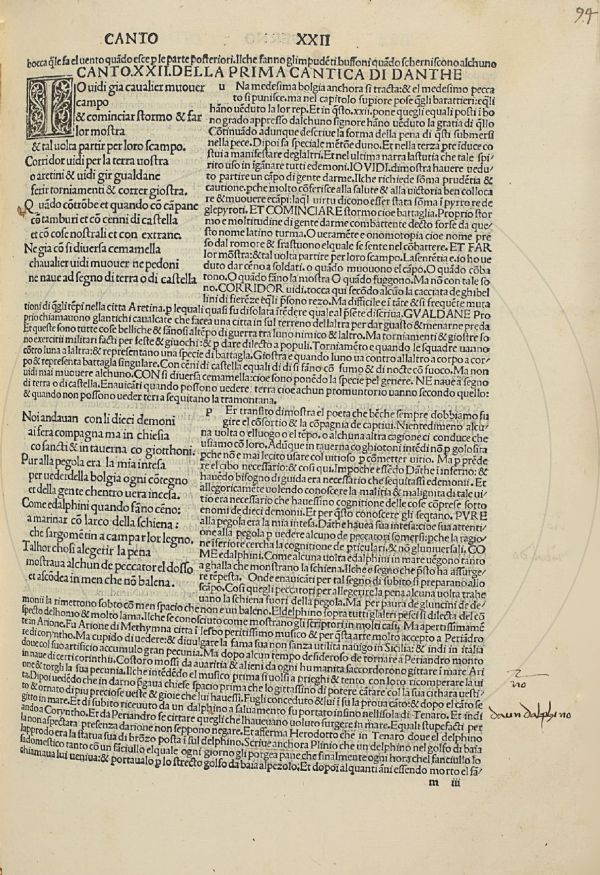 94
CANTO XXII
bocca q̄lle fa el uento quādo esce p le parte posteriori. Ilche fanno gl'impudēti buffoni quādo scherniscono alchuno
CANTO.XXII.DELLA PRIMA CANTICA DI DANTHE
IO uidi gia caualier muouer
campo
& cominciar stormo & far
lor mostra
& tal uolta partir per loro scampo.
Corridor uidi per la terra uostra
o aretini & uidi gir gualdane
ferir torniamenti & correr giostra.
Quādo cō trōbe et quando cō cāpane
cō tamburi et cō cenni di castella
et con cose nostrali et con extrane.
Ne gia cō si diuersa cemamella
chaualier uidi muouer ne pedoni
ne naue ad segno di terra o di castella
uNa medesima bolgia anchora si tracta: & el medesimo pecca
to si punisce. ma nel capitolo supiore pose q̄gli barattieri: eq̄li
hāno uēduto la lor rep. Et in q̄sto .xxii. pone quegli equali posti ī bo
no grado appresso dalchuno signore hāno uēduto la gratia di q̄llo
Cōtinuādo adunque descriue la forma della pena di q̄sti submersi
nella pece. Dipoi fa speciale mētōe duno. Et nella terza pte īduce co
stui a manifestare deglaltri. Et nel ultima narra lastutia che tale spi
rito uso in īgānare tutti edemoni. IO VIDI. dimostra hauere uedu
to partire un cāpo di gente darme. Ilche richiede sōma prudētia &
cautione. pche molto cōferisce alla salute & alla uictoria ben colloca
re & muouere ecāpi: laq̄l uirtu dicono esser stata sōma ī pyrro re de
glepyroti. ET COMINCIARE stormo cioe battaglia. Proprio stor
mo e moltitudine di gente darme combattente decto forse da que
sto nome latino turma. O ueramēte e onomotopia cioe nome pre
so dal romore & frastuono el quale se sente nel cōbattere. ET FAR
lor mōstra: & tal uolta partire per loro scampo. La sentētia e. io ho ue
duto dar ceno a soldati. o quādo muouono el cāpo. O quādo cōba
tono. O quādo fāno la mostra O quādo fuggono. Ma nō con tale so
no. CORRIDOR uidi. tocca qui secōdo alcūo la cacciata de ghibel
lini di fierēze eq̄li p̄sono rezo. Ma difficile e ī tāte & sī frequēte muta
tioni di q̄gli tēpi nella citta Aretina. p lequali quasi fu disolata ītēdere quale al p̄sēte di scriua. GVALDANE Pro
prio chiamauono glantichi caualcare che facea una citta in sul terreno dellaltra per dar guasto & menarne preda
Et queste sono tutte cose belliche & fānosi al tēpo di guerra tra luno nimico & laltro. Ma torniamenti & giostre so
no exercitii militari facti per feste & giuochi: & p dare dilecto a populi. Torniamēto e quando le squadre uanno
cōtro luna a laltra: & representano una specie di battaglia. Giostra e quando luno ua contro allaltro a corpo a cor
po & representa battaglia singulare. Con cēni di castella equali di dì si fāno cō fumo & di nocte cō fuoco. Ma non
uidi mai muouere alchuno. CON si diuersa cēmamella: cioe sono ponēdo la specie pel genere. NE naue a segno
di terra o di castella. Enauicāti quando possono uedere terra cioe achun promuntorio uanno secondo quello:
& quando non possono ueder terra sequitano la tramontana.
Noi andauan con li dieci demoni
ai fera compagna ma in chiesia
co sancti & in tauerna co giotthoni.
Pur alla pegola era la mia intesa
per ueder della bolgia ogni cōtegno
et della gente chentro uera incesa.
Come edalphini quando fāno cēno:
a marinar cō larco della schiena:
che sargomētin a campar lor legno.
Talhor chosi alegerir la pena
mostraua alchun de peccator el dosso
et ascōdea in men che nō balena.
pEr transito dimostra el poeta che bēche sempre dobbiamo fu
gire el cōsortio & la cōpagnia de captiui. Nientredimeno alcu
na uolta o el luogo o el tēpo. o alchuna altra cagione ci conduce che
usiamo cō loro. Adūque in tauerna co ghiotoni intēdi nō p golosita
pche nō e mai lecito usare col uitioso p cōmetter uitio. Ma p prēde
re el cibo necessario: & cosi qui. Impoche essēdo Dāthe ī inferno: &
hauēdo bisogno di guida era necessario che sequitassi edemonii. Et
allegoricamēte uolendo conoscere la malitia & malignita di tale ui
tio era necessario che hauessino cognitione delle cose cōprese sotto
enomi de dieci demonii. Et per q̄sto conoscere gli seqtano. PVRE
alla pegola era la mia intesa. Dāthe hauea sua intesa: cioe sua attenti
one alla pegola p uedere alcuno de peccatori somersi: pche la ragio
ne īferiore cerca la cognitione de pticulari: & nō gluniuersali. CO
ME edalphini. Come alcuna uolta edalphini in mare uēgono tanto
a ghalla che monstrano la schiena. Ilche e segno che p̄sto ha assurge
re tēpesta. Onde enauicāti per tal segno di subito si preparano allo
scāpo. Cosi quegli peccatori per allegerire la pena alcuna uolta trahe
uano la schiena fuori della pegola. Ma per paura de gluncini de de
monii la rimettono sobto cō men spacio che non e un baleno. El delphino sopra tutti glaltri pesci si dilecta del cō
specto delhomo & molto lama. Ilche se conosciuto come monstrano gli scriptori in molti casi. Ma apertissimamē
te in Arione. Fu Arione di Methymna citta ī lesbo peritissimo musico & per q̄sta arte molto accepto a Periādro
re di coryntho. Ma cupido di uedere: & diuulgare la fama sua non sanza utilita nauigo in Sicilia: & indi in italia
doue col suo artificio accumulo gran pecunia. Ma dopo alcun tempo desideroso de tornare a Periandro monto
in naue di certi corinthii. Costoro mossi da auaritia & alieni da ogni humanita saccordorno gittare ī mare Ari
one & torgli la sua pecunia. Ilche intēdēdo el musico prima si uolsi a prieghi & tento con loro ricomperare la ui
ta. Dipoi uedēdo che in darno p̄gaua chiese spacio prima che lo gittassino di potere cātare col la sua cithara uesti
to & ornato di piu preciose ueste & gioie che lui hauessi. Fugli conceduto: & lui ī su la proua cātō: & dopo el cāto si
gitto in mare. Et di subito riceuuto da un dalphino a saluamento fu portato infino nellisola di Tenaro. Et indi
andò a Corynto. Et da Periandro se cittare quegli che lhaueuano uoluto surgere in mare. Equali stupefacti per
la non aspectata presenza darione non seppono negare. Et afferma Herodotto che in Tenaro doue el delphino
lapprodo era la statua sua di brōzo posta ī sul delphino. Scriue anchora Plinio che un delphino nel golfo di baia
si domestico tanto cō un faciullo el quale ogni giorno gli porgea pane che finalmente ogni hora chel fanciullo lo
chiamaua lui ueniua: & portaualo p lo strecto golfo da baia al pezolo. Et dopoi alquanti āni essendo morto el fā
no
da un dalphino
m iii